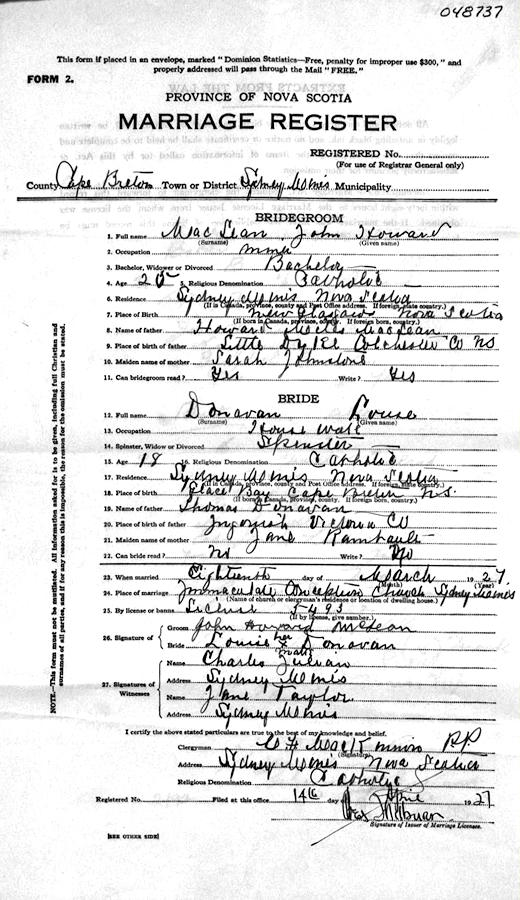 048737
This form if placed in an envelope, marked "Dominion Statistics—Free, penalty for improper use $300," and
properly addressed will pass through the Mail "FREE."
FORM 2.
PROVINCE OF NOVA SCOTIA
MARRIAGE REGISTER
REGISTERED No.
(For use of Registrar General only)
County Cape Breton Town or District Sydney Mines Municipality
BRIDEGROOM
1. Full name MacLean John Howard
(Surname) (Given name)
2. Occupation
3. Bachelor, Widower or Divorced Bachelor
4. Age 20 5. Religious Denomination Catholic
6. Residence Sydney Mines Nova Scotia
(If in Canada, province, county and Post Office address. If foreign, state country.)
7. Place of Birth New Glasgow Nova Scotia
(If born in Canada, province, county. If foreign born, country.)
8. Name of father Howard MacLean
9. Place of birth of father Little Colchester Co NS
10. Maiden name of mother Sarah Johnstone
11. Can bridegroom read? Yes Write? Yes
BRIDE
12. Full name Donavan Louise
(Surname) (Given name)
13. Occupation House
14. Spinster, Widow or Divorced Spinster
15. Age 18 16. Religious Denomination Catholic
17. Residence Sydney Mines Nova Scotia
(If in Canada, province, county and Post Office address. If foreign, state country.)
18. Place of birth Glace Bay Cape Breton N.S.
(If born in Canada, province, county. If foreign born, country.)
19. Name of father Thomas Donavan
20. Place of birth of father Ingonish Victoria Co
21. Maiden name of mother Jane
22. Can bride read? No Write? No
23. When married Eighteenth day of March 1927.
(Month) (Year)
24. Place of marriage Immaculate Conception Church Sydney Mines
(Name of church or clergyman's residence or location of dwelling house.)
25. By license or banns License 5493
(If by license, give number.)
26. Signature of
Groom John Howard McLean
Bride Louise her x mark Donovan
27. Signatures of Witnesses
Name Charles
Address Sydney Mines
Name Jane Taylor
Address Sydney Mines
I certify the above stated particulars are true to the best of my knowledge and belief.
Clergyman P.P.
(Signature)
Address Sydney Mines Nova Scotia
Religious Denomination Catholic
Registered No. Filed at this office 14th day of April 1927
Signature of Issuer of Marriage Licenses.
[SEE OTHER SIDE]
NOTE.—This form must not be mutilated. All information asked for is to be given, including full Christian and
surnames of all parties, and if for any reason this is impossible, the reason for the omission must be stated.